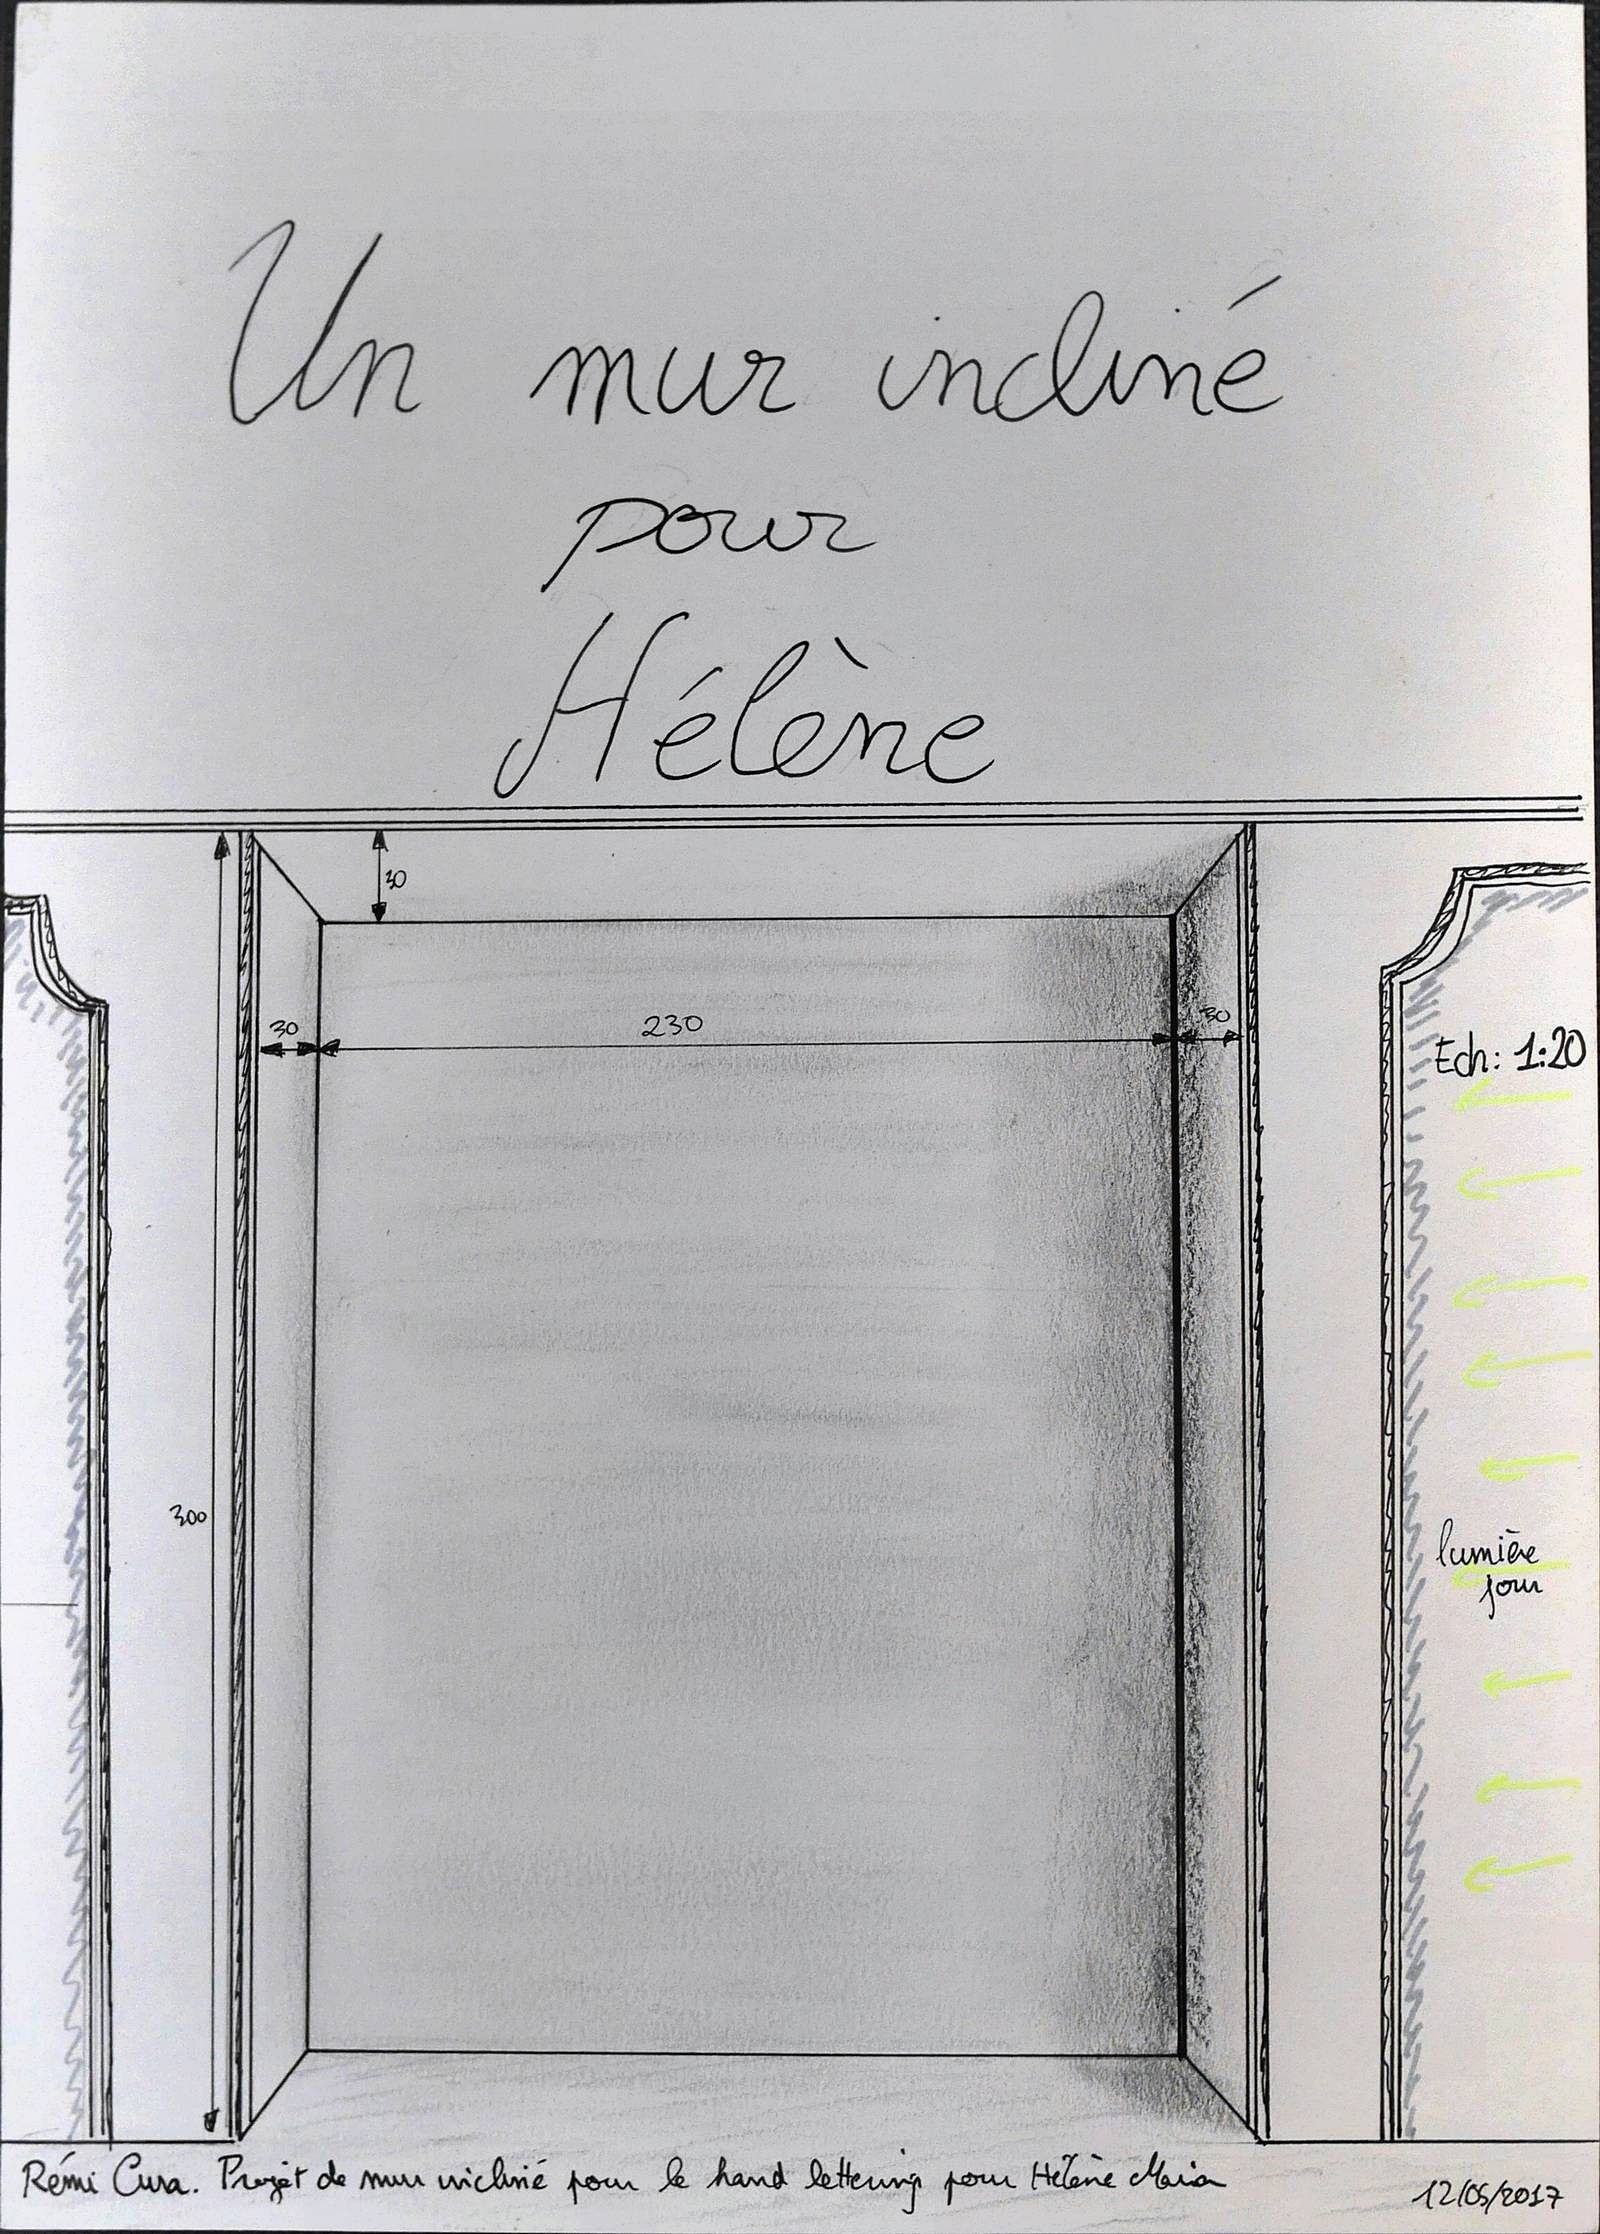 Un mur incliné
pour
Hélène
30
30
230
30
Ech: 1:20
300
lumière
jour
Rémi Cura. Projet de mur incliné pour le hand lettering pour Hélène Maria
12/05/2017